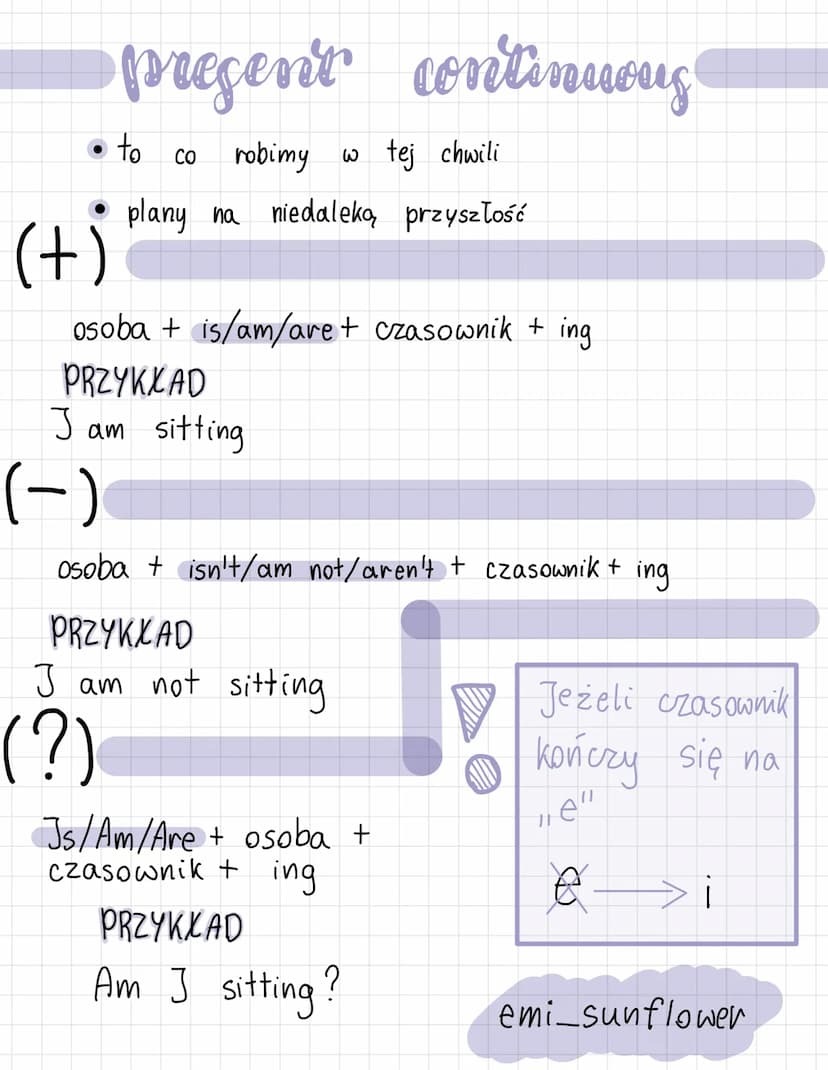 present continuous
• to co robimy w tej chwili
• plany na niedaleką przyszłość
(+)
osoba + is/am/are + czasownik + ing
PRZYKŁAD
I am sitting
(-)
osoba + isn't/am not/aren't + czasownik + ing
PRZYKŁAD
I am not sitting
(?)
Is/Am/Are + osoba +
czasownik + ing
PRZYKŁAD
Am I sitting?
Jeżeli czasownik
kończy się na
„e"
e → i
emi_sunflower